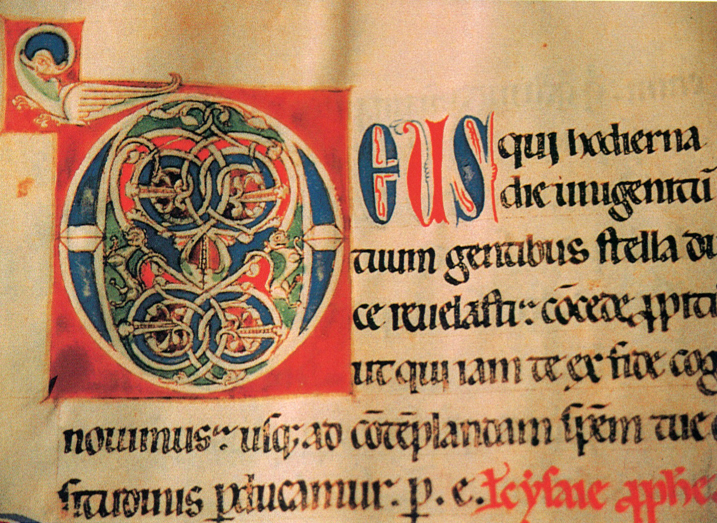 Deus qui hodierna
die unigenitū
tuum gentibus stella du
ce reuelasti: cōcede ꝓpiti
ut qui iam te ex fide cog
nouimus: usq; ad cōtēplandam spēm tue
situdinis ꝑducamur. p. e. Lc ysaie ꝓphe